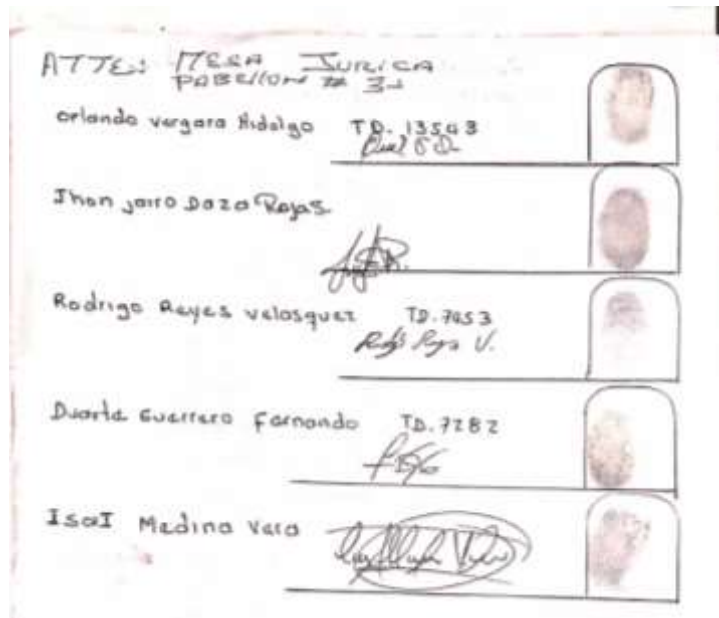 ATTE: MESA JURICA
PABELLON # 3-
orlando vergara Hidalgo TD. 13503
Jhon jairo Daza Rojas.
Rodrigo Reyes velasquez TD. 7053
Duarte Guerrero Fernando TD. 7282
IsaI Medina Vera